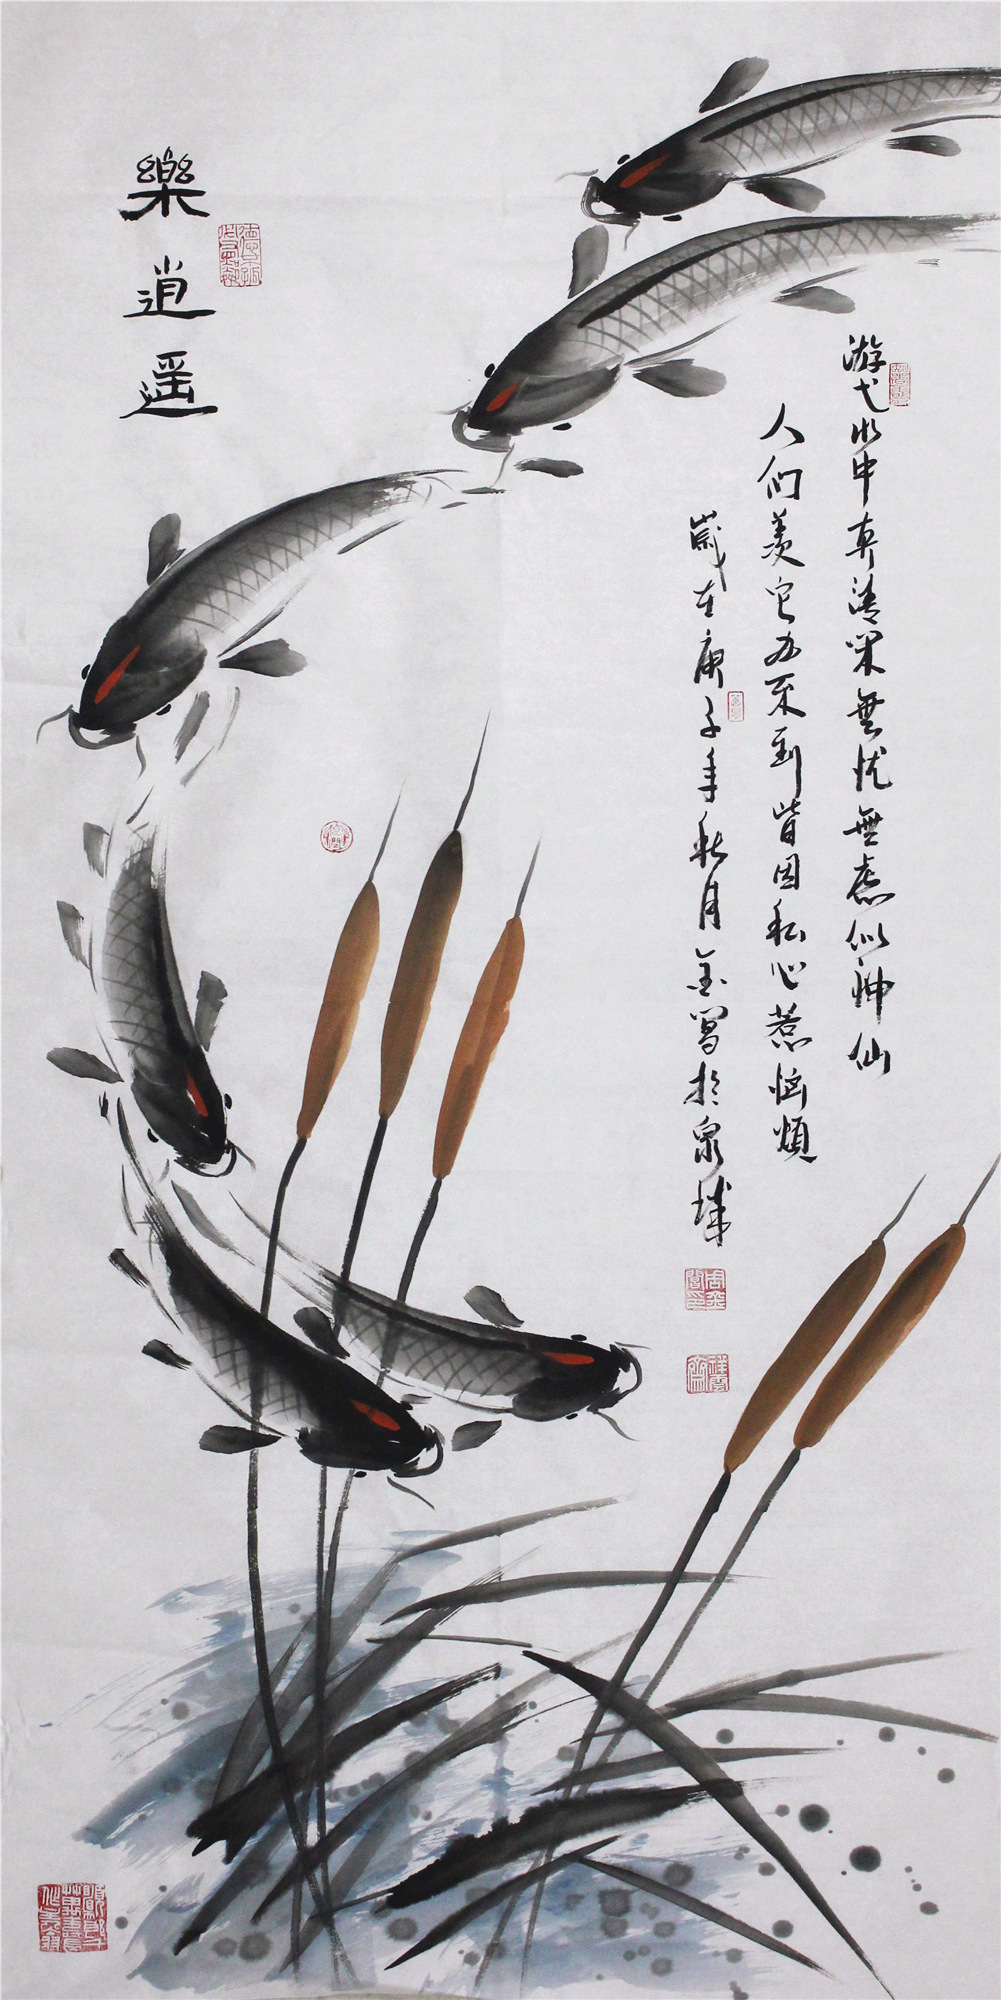 樂逍遥
游弋水中真清閑無忧無虑似神仙
人们羡它办不到皆因私心惹恼烦
歲在庚子年秋月金写於泉城